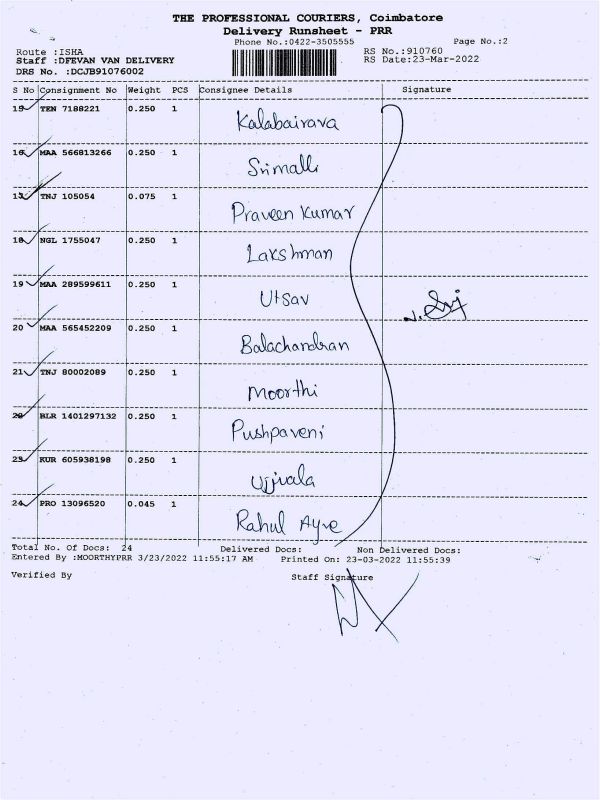 THE PROFESSIONAL COURIERS, Coimbatore
Delivery Runsheet - PRR
Phone No.:0422-3505555 Page No.:2
Route :ISHA RS No.:910760
Staff :DFEVAN VAN DELIVERY RS Date:23-Mar-2022
DRS No. :DCJB91076002
S No Consignment No Weight PCS Consignee Details Signature
15 TEN 7188221 0.250 1 Kalabairava
16 MAA 566813266 0.250 1 Srimalli
17 TNJ 105054 0.075 1 Praveen Kumar
18 NGL 1755047 0.250 1 Lakshman
19 MAA 289599611 0.250 1 Utsav
20 MAA 565452209 0.250 1 Balachandran
21 TNJ 80002089 0.250 1 Moorthi
22 BLR 1401297132 0.250 1 Pushpaveni
23 KUR 605938198 0.250 1 Ujjivala
24 PRO 13096520 0.045 1 Rahul Ayre
Total No. Of Docs: 24 Delivered Docs: Non Delivered Docs:
Entered By :MOORTHYPRR 3/23/2022 11:55:17 AM Printed On: 23-03-2022 11:55:39
Verified By Staff Signature